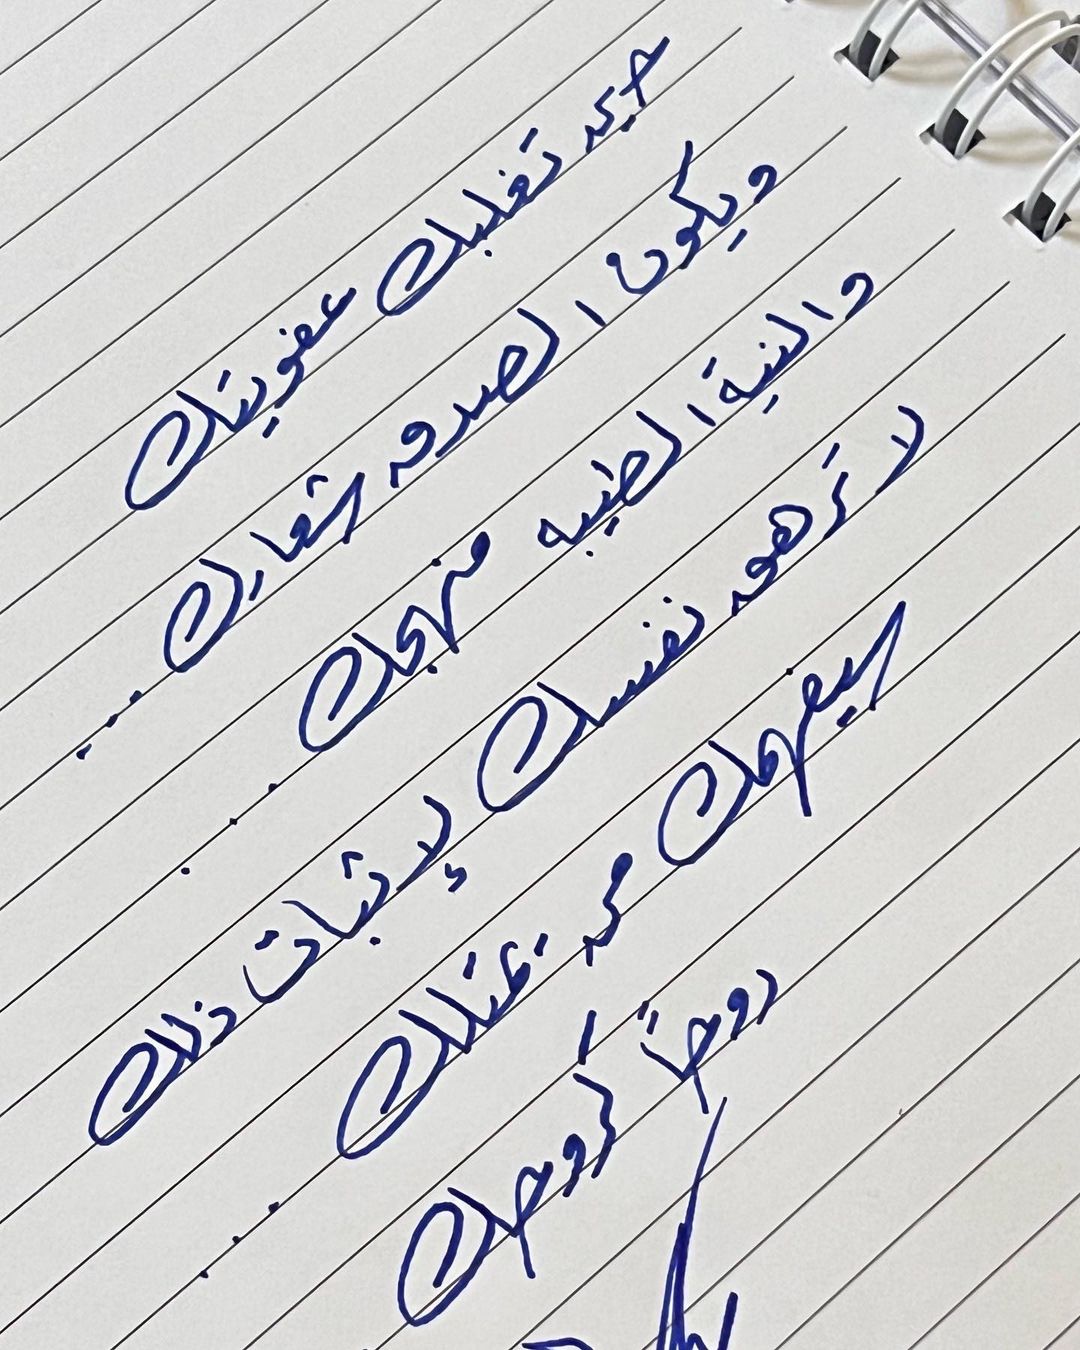 حين تغلبك عفويتك
ويكون الصدق شعارك ...
والنية الطيبه منهجك ...
لا ترهق نفسك لإثبات ذلك
سيفهمك من يمتلك ...
روحًا كروحك